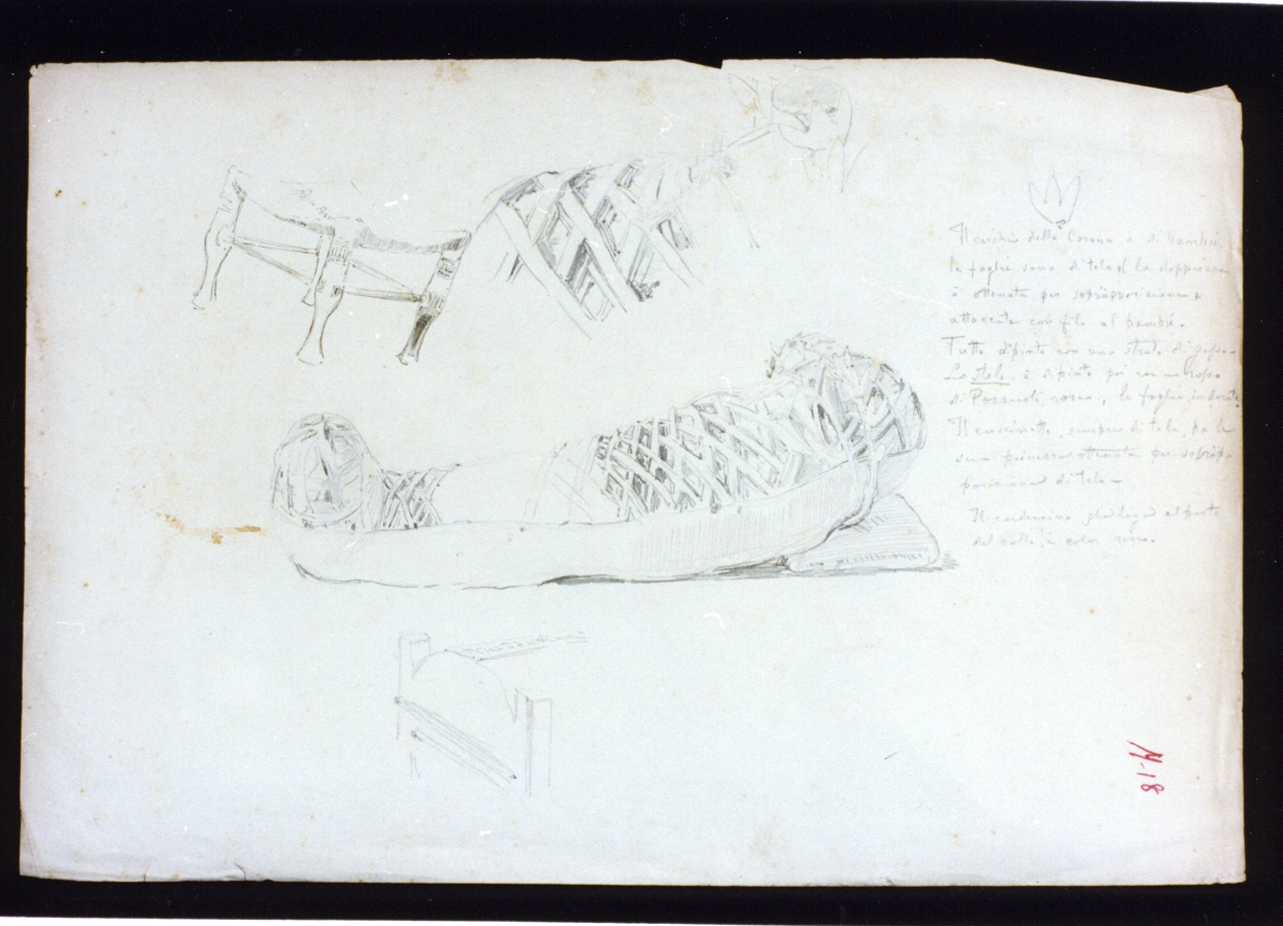 Il cerchio della Corona è di bambù.
le foglie sono di tela la doppiezza
è ottenuta per soprapposizione e
attaccate con filo al bambù.
Tutto dipinto con uno strato di gesso
Lo stelo è dipinto poi con un rosso
di Pozzuoli rosso, le foglie indorate
Il cuscinetto, sempre di tela, ha la
sua ottenuta per soprap-
posizione di tela -
Il cordoncino che lega
del collo, è color rosso.
14-18